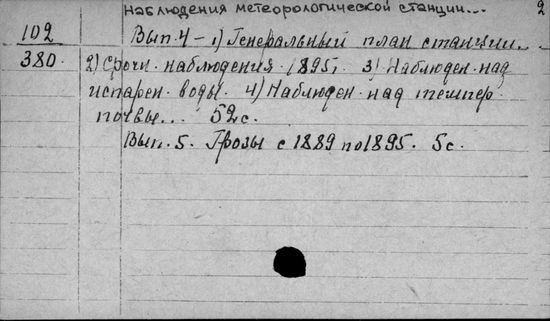 наблюдения метеорологической станции... 2
102 Вып. 4 - 1) Генеральный план станции.
380. 2) Срочн. наблюдения 1895г. 3) Наблюден. над
испарен. воды. 4) Наблюден. над темпер.
почвы... 52 с.
Вып. 5. Грозы с 1889 по 1895. 5 с.